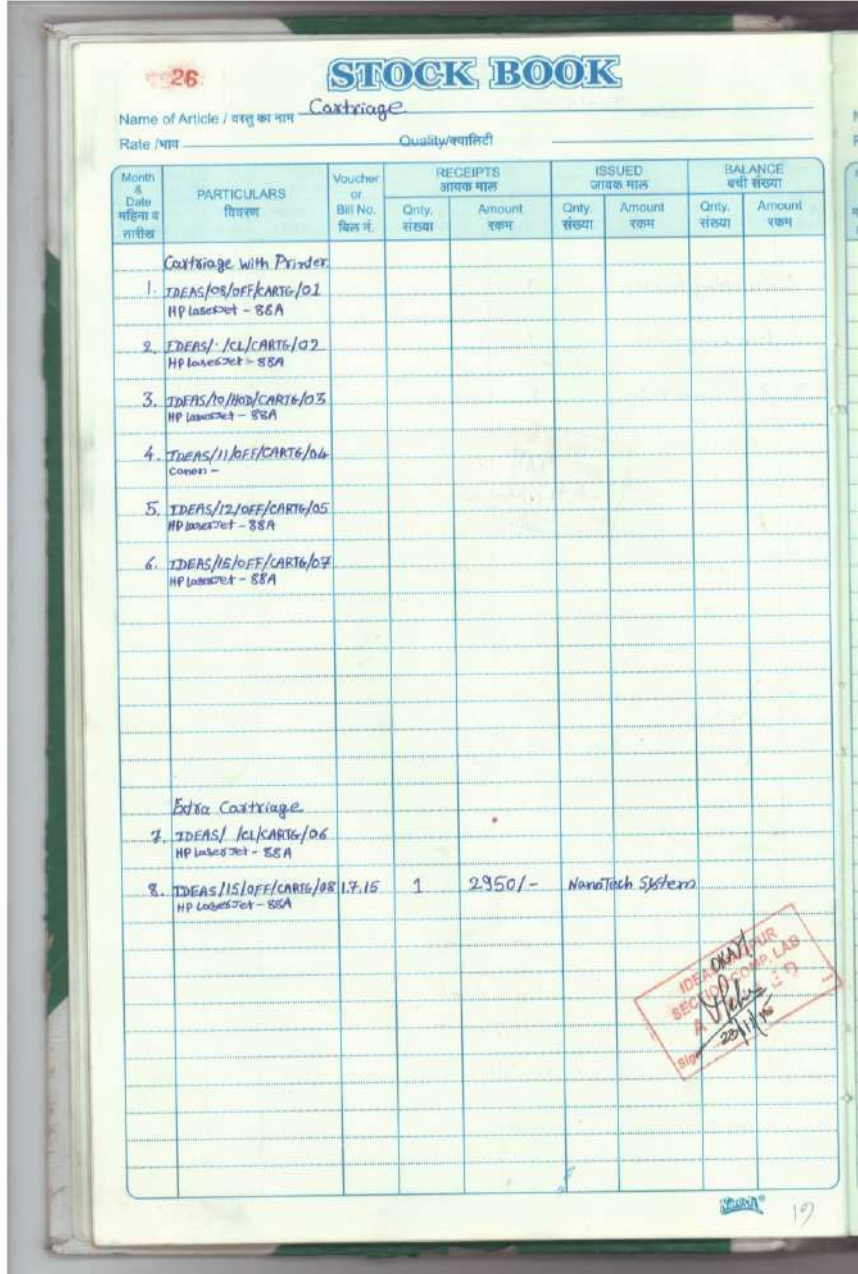 26
STOCK BOOK
Name of Article / वस्तु का नाम Cartriage
Rate /भाव Quality/क्वालिटी
Month & Date महिना व तारीख PARTICULARS विवरण Voucher or Bill No. बिल नं. RECEIPTS आवक माल ISSUED जावक माल BALANCE बची संख्या
Qnty. संख्या Amount रकम Qnty. संख्या Amount रकम Qnty. संख्या Amount रकम
Cartriage with Printer
1. IDEAS/08/OFF/CARTG/01
HP LaserJet - 88A
2. IDEAS/ /CL/CARTG/02
HP LaserJet - 88A
3. IDEAS/10/HOD/CARTG/03
HP LaserJet - 88A
4. IDEAS/11/OFF/CARTG/04
Canon -
5. IDEAS/12/OFF/CARTG/05
HP LaserJet - 88A
6. IDEAS/15/OFF/CARTG/07
HP LaserJet - 88A
Extra Cartriage
7. IDEAS/ /CL/CARTG/06
HP LaserJet - 88A
8. IDEAS/15/OFF/CARTG/08 1.7.15 1 2950/- NanoTech System
HP LaserJet - 88A
OKAY
SECTION COMP. LAB
Sig
19